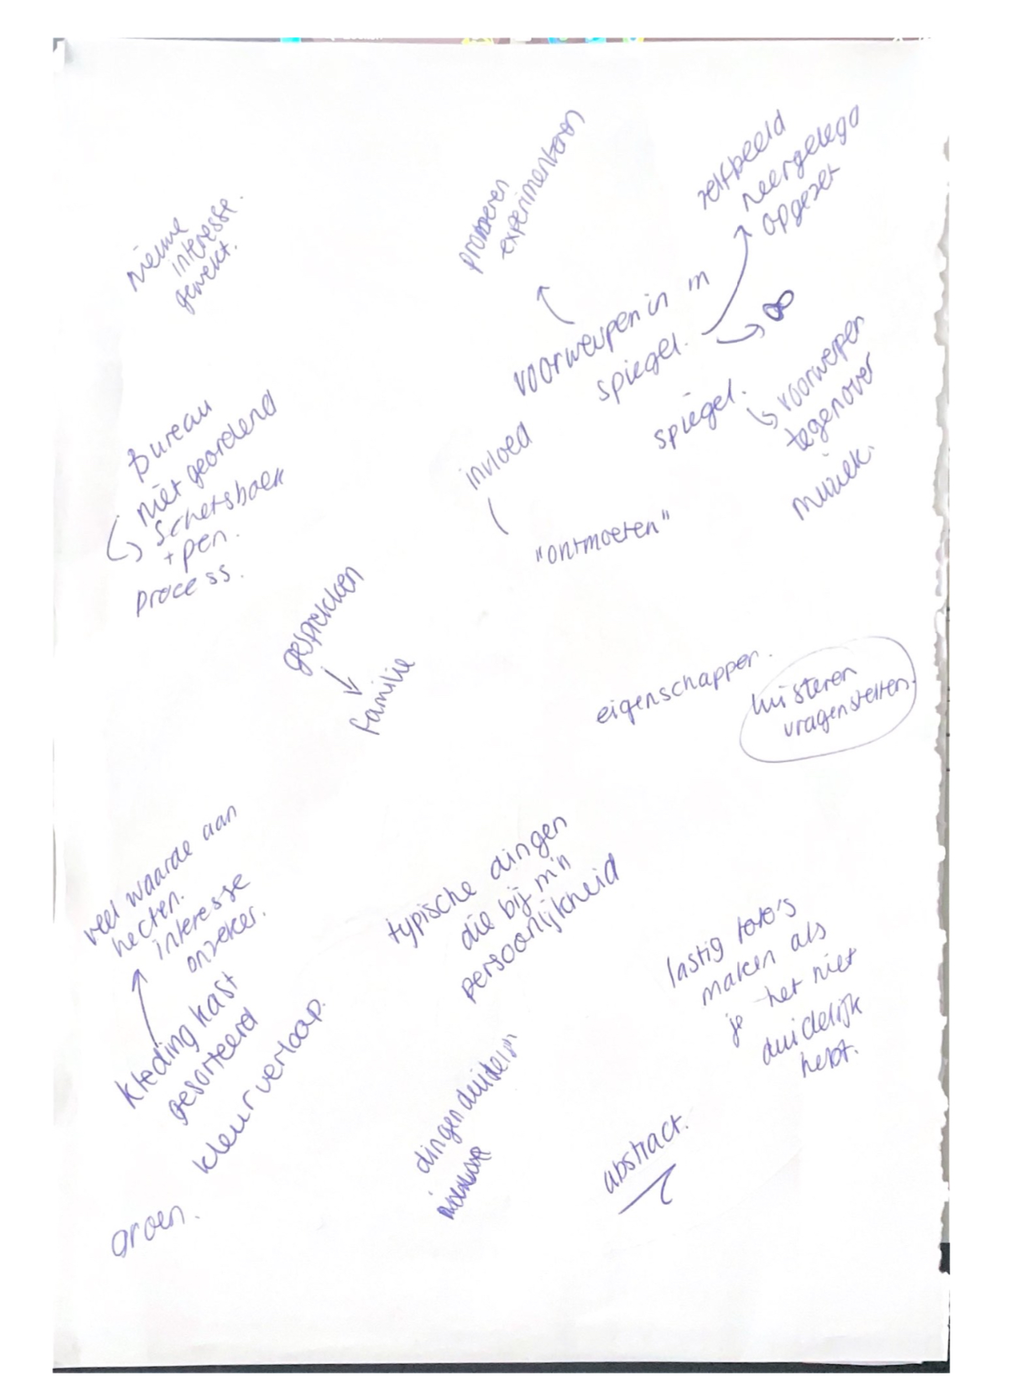 nieuwe
interesse.
gewekt.
proberen
experimenteren
zelfbeeld
neergelegd
opgezet
voorwerpen in m
spiegel.
spiegel.
voorwerpen
tegenover
muziek.
invloed
"ontmoeten"
Bureau
niet geordend
Schetsboek
+ pen.
process.
gesprekken
familie
eigenschappen.
luisteren
vragenstellen.
veel waarde aan
hechten.
interesse
onzeker.
kleding kast
gesorteerd
kleurverloop.
groen.
typische dingen
die bij m'n
persoonlijkheid
dingen duidelijk
lastig foto's
maken als
je het niet
duidelijk
hebt.
abstract.